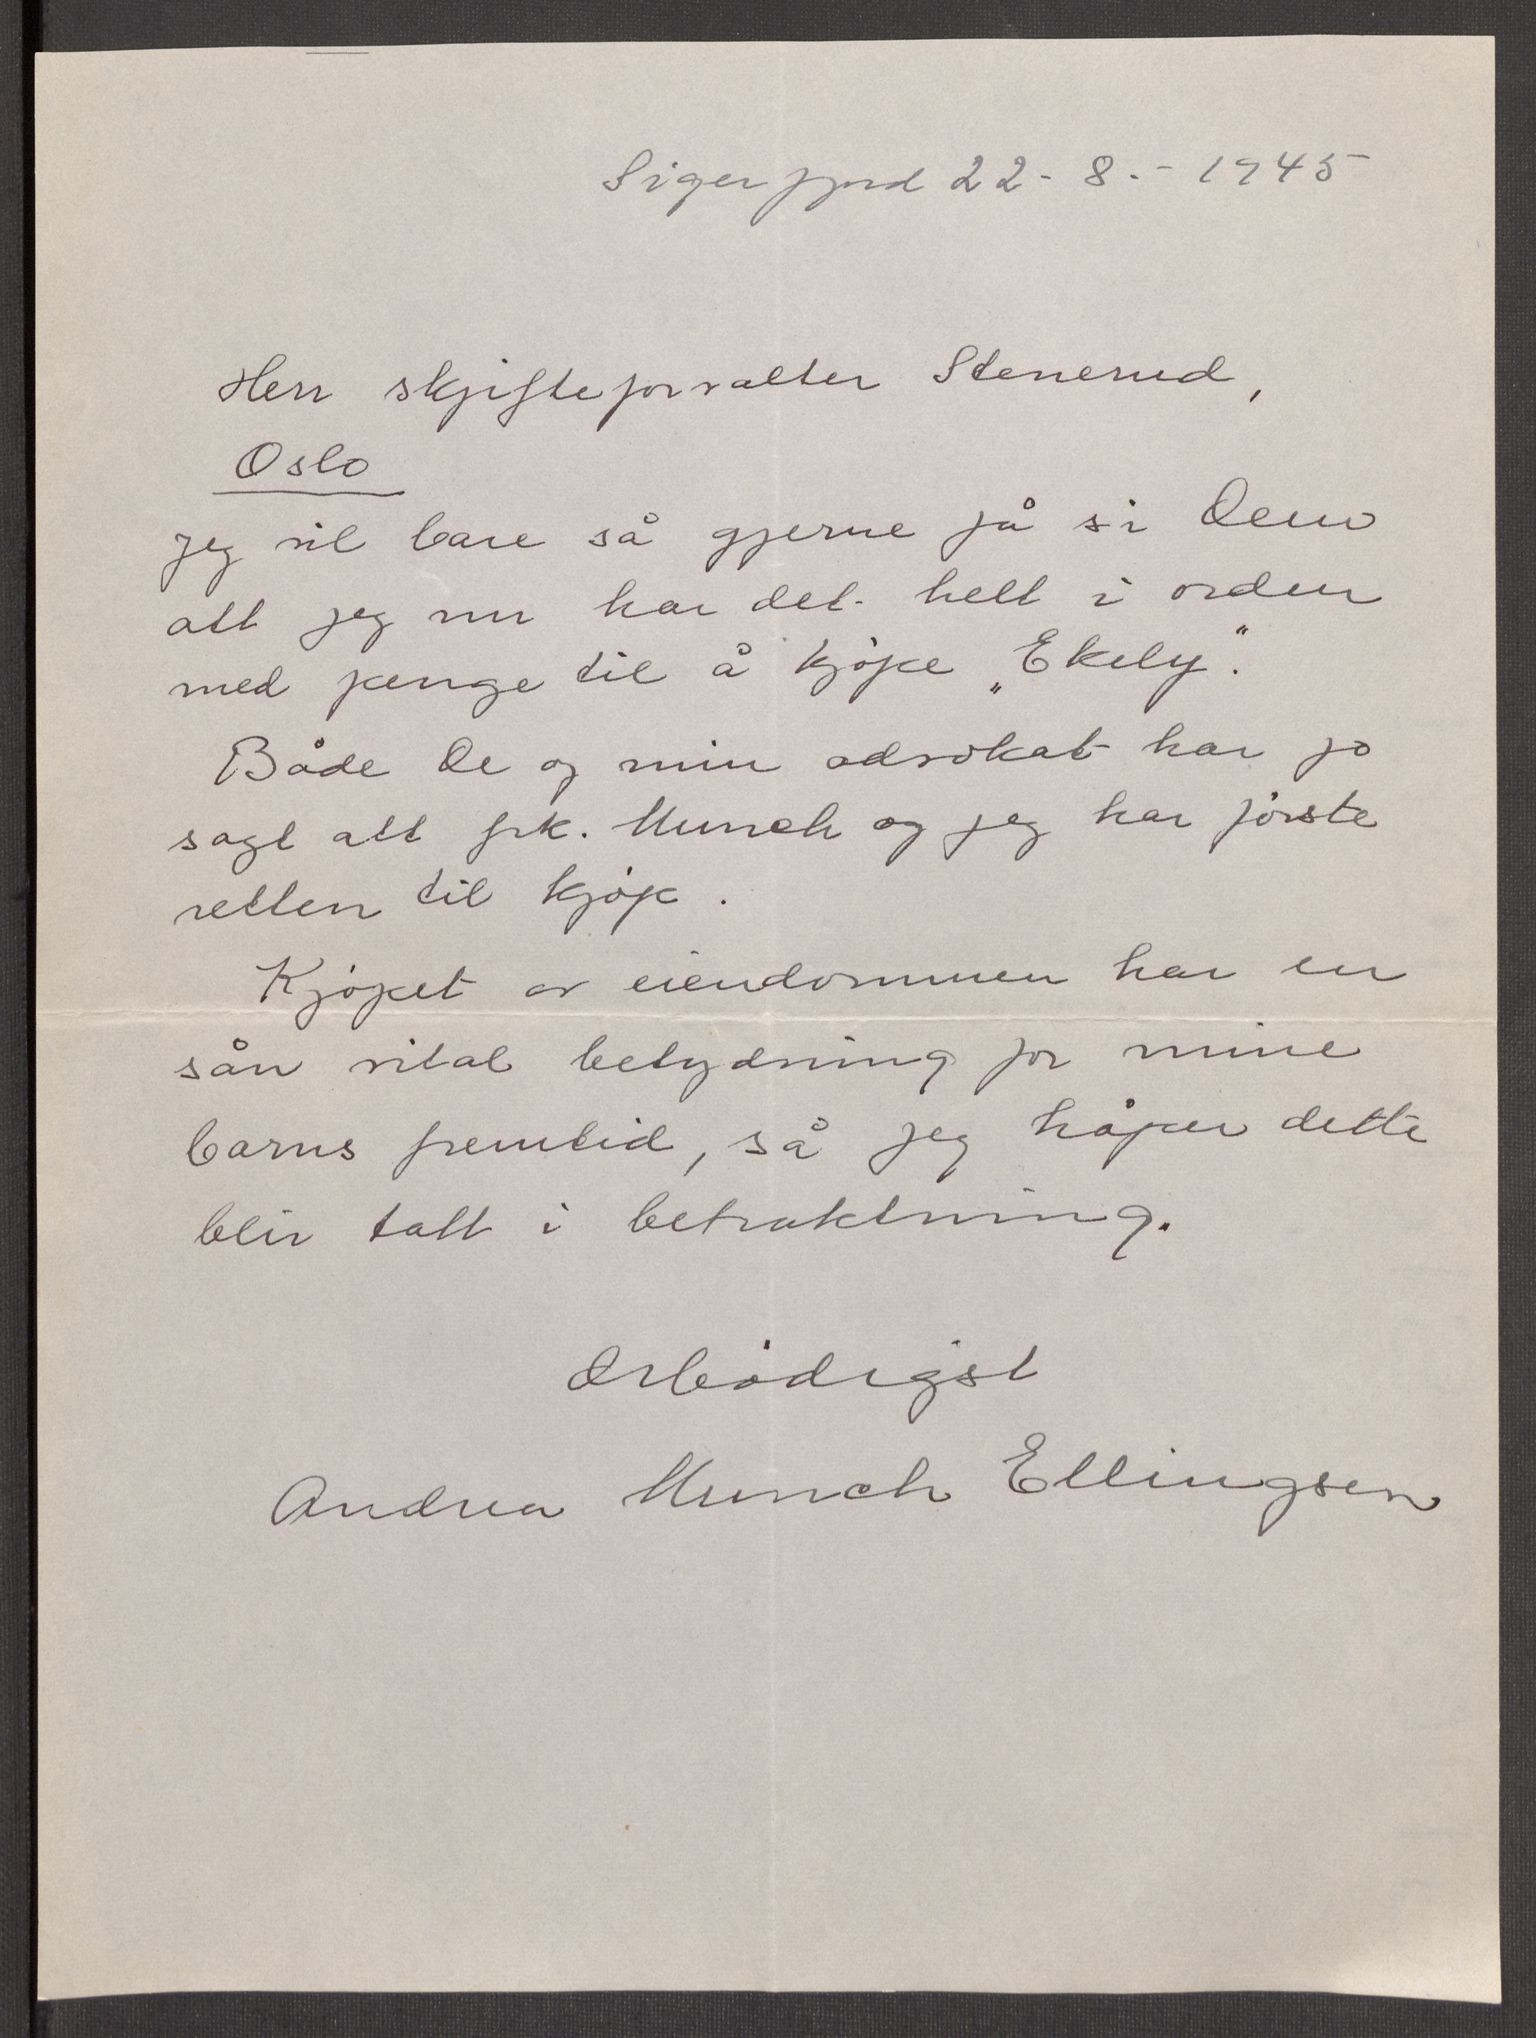 Sigerfjord 22-8.-1945
Herr skifteforvalter Stenerud,
Oslo
Jeg vil bare så gjerne få si Dem
att jeg nu har det helt i orden
med penge til å kjøpe „Ekely".
Både De og min advokat har jo
sagt att frk. Munch og jeg har første
retten til kjøp.
Kjøpet av eiendommen har en
sån vital betydning for mine
barns fremtid, så jeg håper dette
blir tatt i betraktning.
Ærbødigst
Andrea Munch Ellingsen